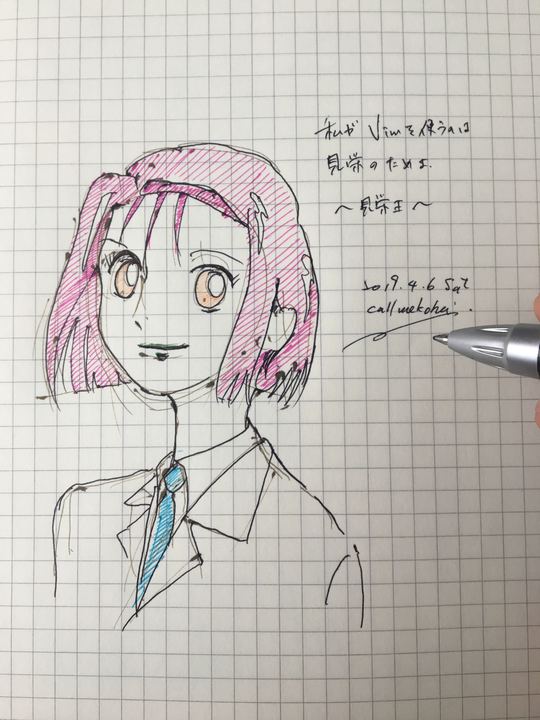 私がVimを使うのは
見栄のためよ。
〜見栄王〜
2019.4.6 Sat
callmekohei.